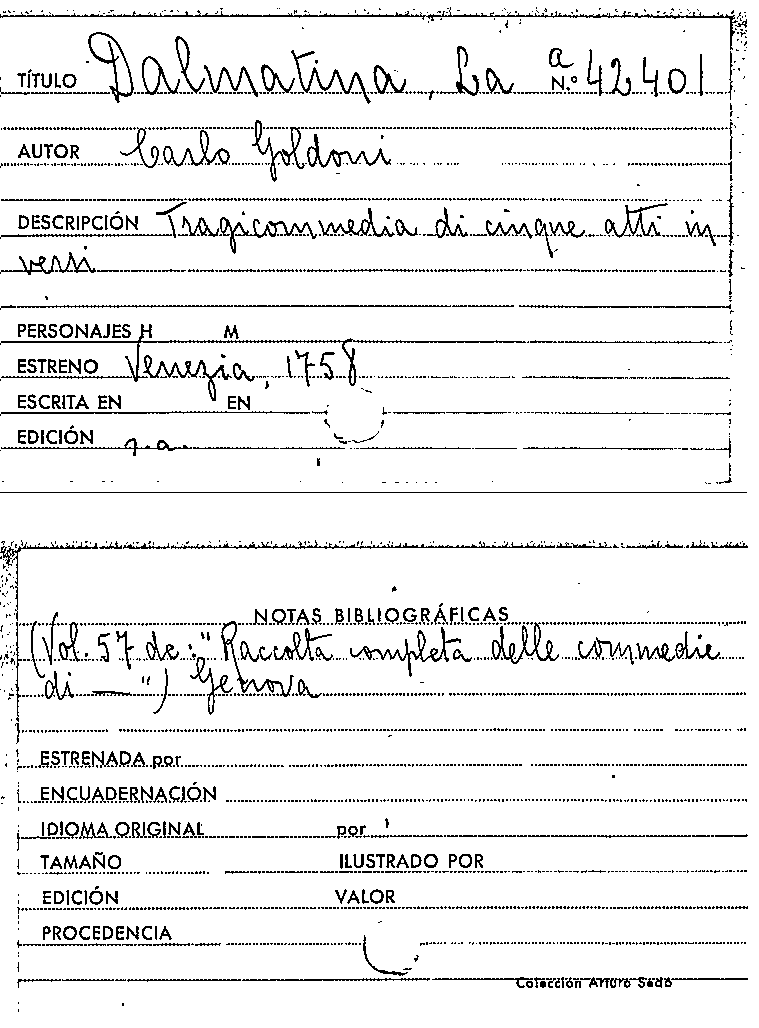 TÍTULO Dalmatina, La a N.º 42401
AUTOR Carlo Goldoni
DESCRIPCIÓN Tragicommedia di cinque atti in
versi
PERSONAJES H M
ESTRENO Venezia, 1758
ESCRITA EN EN
EDICIÓN s.a.
NOTAS BIBLIOGRÁFICAS
(Vol. 57 de: "Raccolta completa delle commedie
di — ") Genova
ESTRENADA por
ENCUADERNACIÓN
IDIOMA ORIGINAL por
TAMAÑO ILUSTRADO POR
EDICIÓN VALOR
PROCEDENCIA
Colección Arturo Sedó